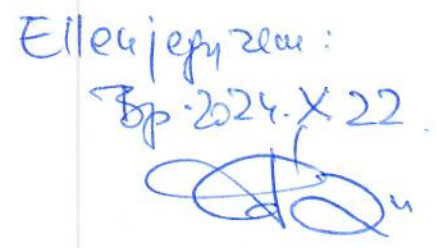 Ellenjegyzem:
Bp. 2024. X. 22.